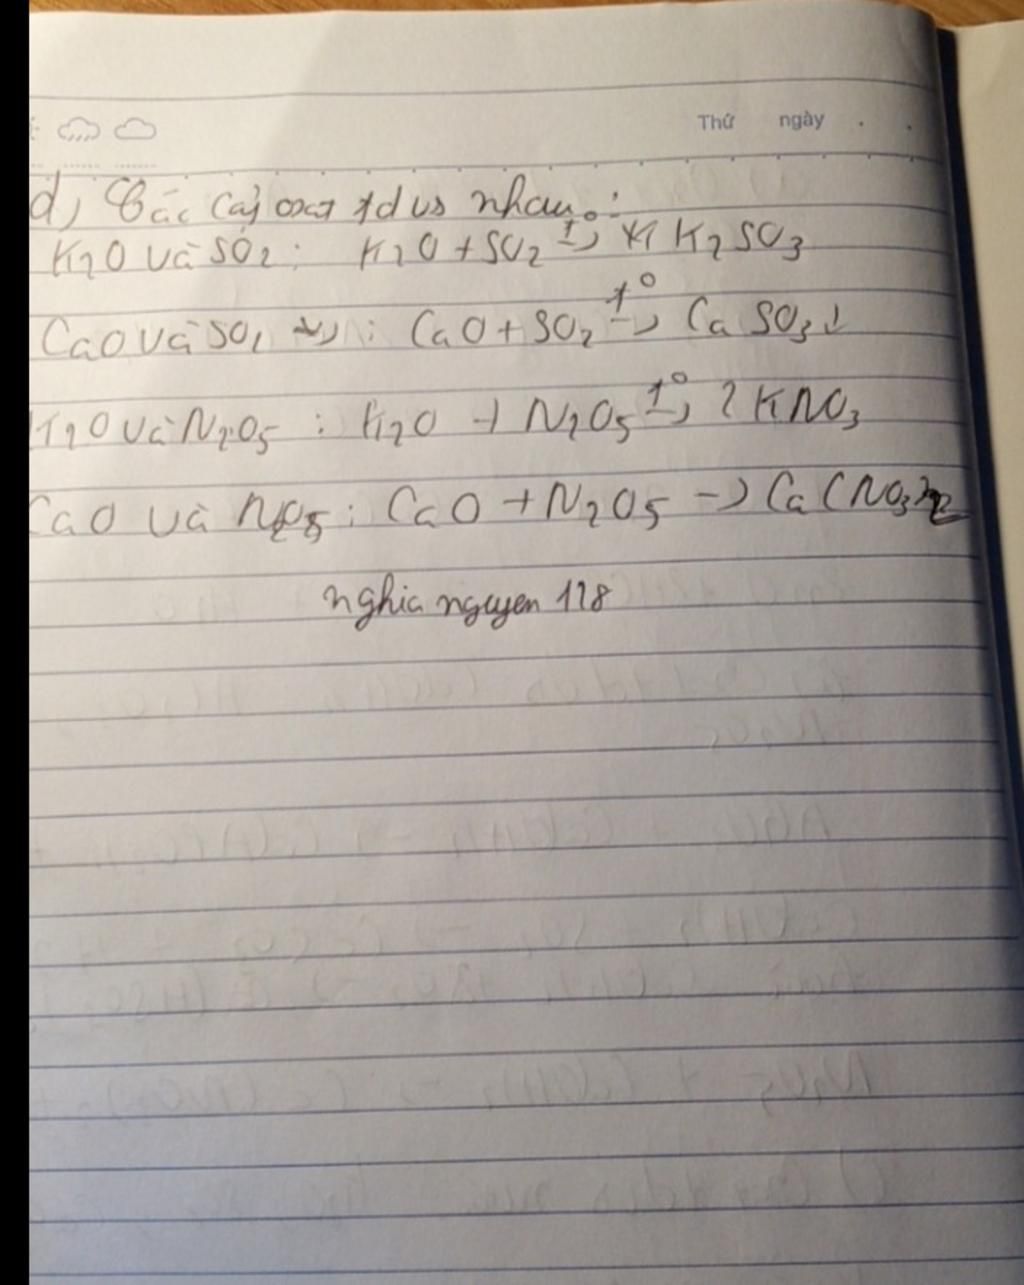 Thứ ngày
d, Các cặp oxit td vs nhau:
K2O và SO2: K2O + SO2 t° → K2SO3
CaO và SO2: CaO + SO2 t° → CaSO3↓
K2O và N2O5: K2O + N2O5 t° → 2KNO3
CaO và N2O5: CaO + N2O5 → Ca(NO3)2
nghia nguyen 118